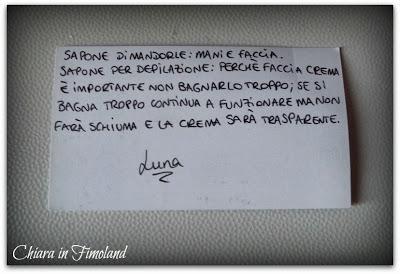 SAPONE DI MANDORLE: MANI E FACCIA.
SAPONE PER DEPILAZIONE: PERCHÈ FACCIA CREMA
È IMPORTANTE NON BAGNARLO TROPPO; SE SI
BAGNA TROPPO CONTINUA A FUNZIONARE MA NON
FARÀ SCHIUMA E LA CREMA SARÀ TRASPARENTE.
Luna
Chiara in Fimoland